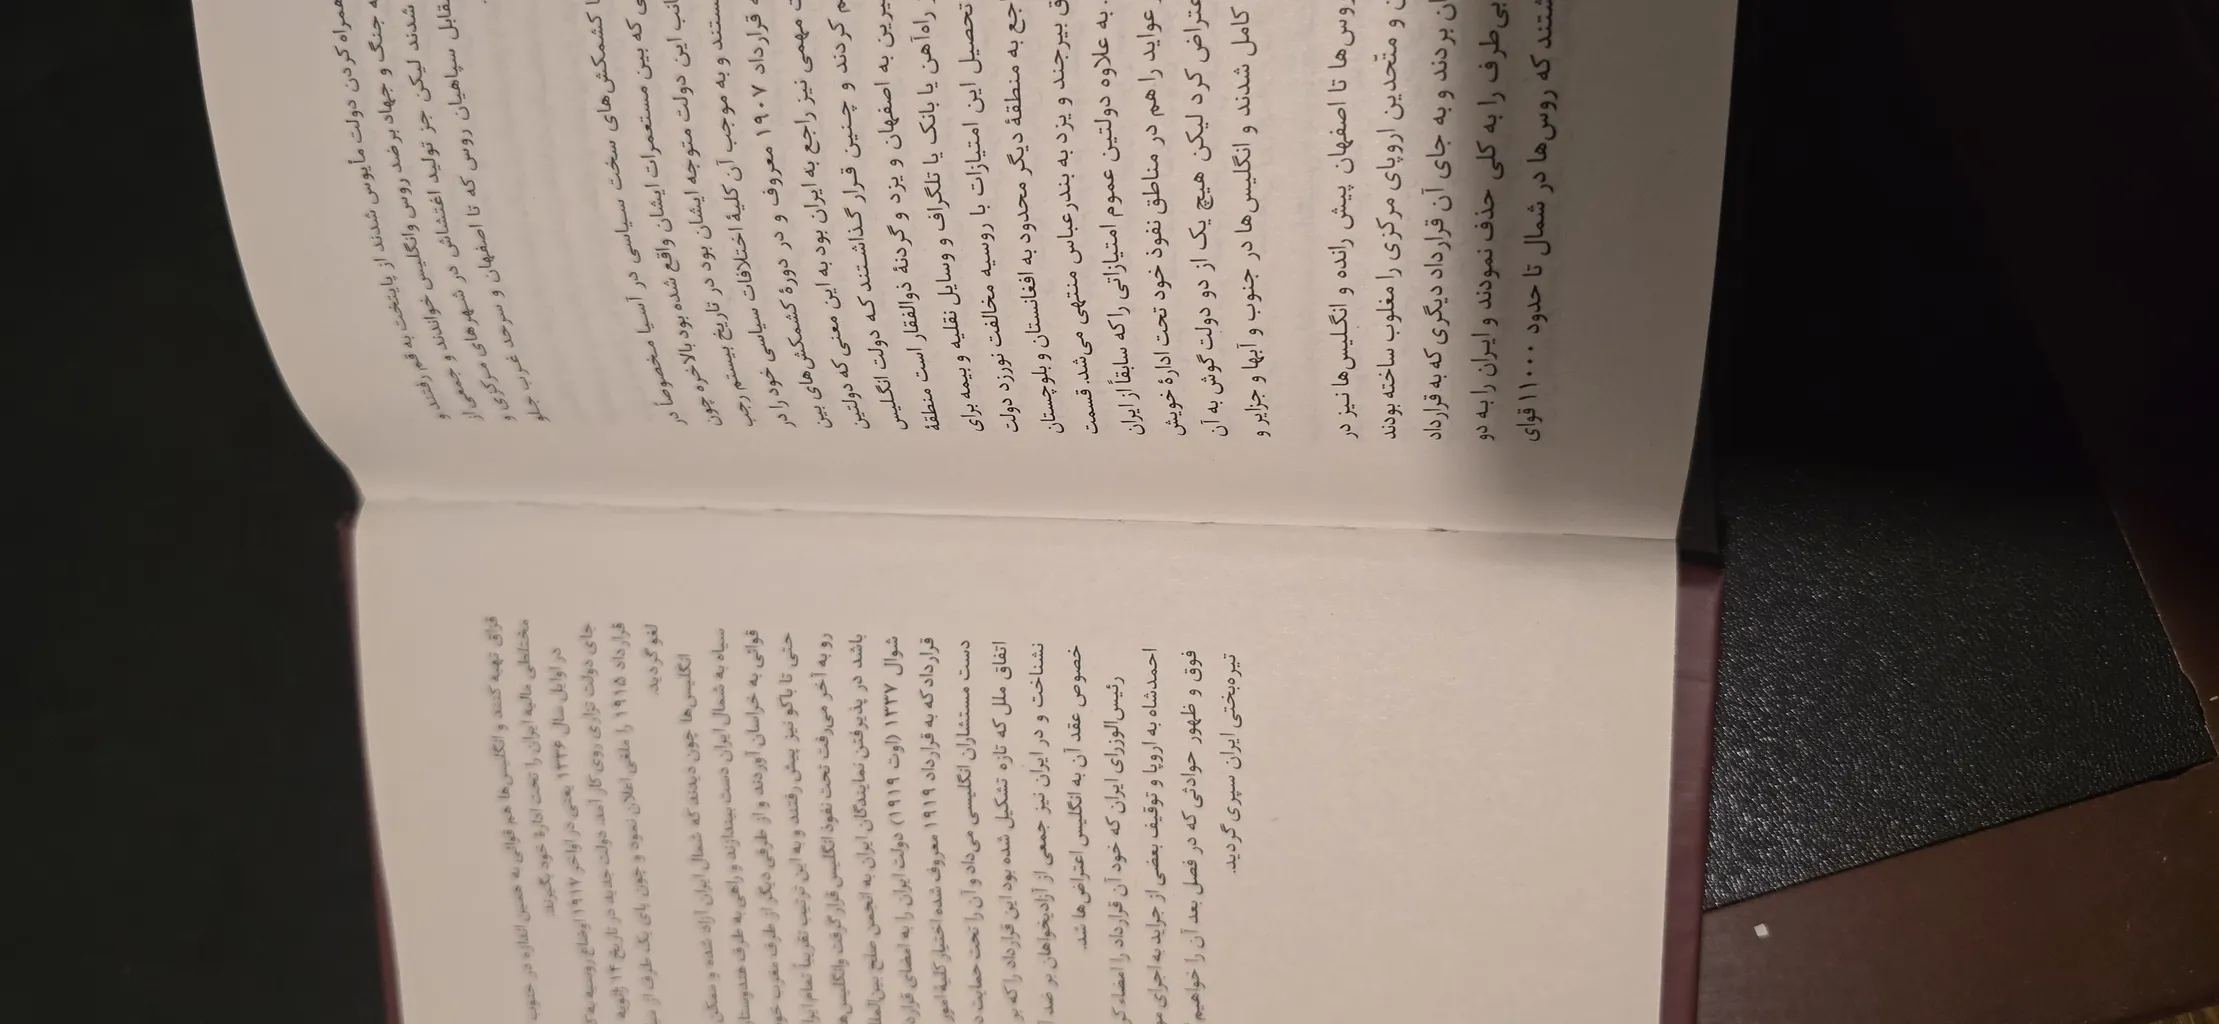 همراه کردن دولت مأیوس شدند از پایتخت به قم رفتند و
جنگ و جهاد بر ضد روس و انگلیس خواندند و جمعی از
شدند لیکن جز تولید اغتشاش در شهرهای مرکزی و
سپاهیان روس که تا اصفهان و سرحد غرب جلو
کشمکش‌های سخت سیاسی در آسیا مخصوصاً در
که بین مستعمرات ایشان واقع شده بود بالاخره چون
این دولت متوجه ایشان بود در تاریخ بیستم رجب
و به موجب آن کلیهٔ اختلافات سیاسی خود را در
قرارداد ۱۹۰۷ معروف و در دورهٔ کشمکش‌های بین
مهمی نیز راجع به ایران بود به این معنی که دولتین
کردند و چنین قرار گذاشتند که دولت انگلیس
به اصفهان و یزد و گردنهٔ ذوالفقار است منطقهٔ
راه‌آهن یا بانک یا تلگراف و وسایل نقلیه و بیمه برای
تحصیل این امتیازات با روسیه مخالفت نورزد دولت
به منطقهٔ دیگر محدود به افغانستان و بلوچستان
بیرجند و یزد به بندرعباس منتهی می‌شد. قسمت
به علاوه دولتین عموم امتیازاتی را که سابقاً از ایران
عواید را هم در مناطق نفوذ خود تحت ادارهٔ خویش
اعتراض کرد لیکن هیچ یک از دو دولت گوش به آن
کامل شدند و انگلیس‌ها در جنوب و آبها و جزایر و
روس‌ها تا اصفهان پیش رانده و انگلیس‌ها نیز در
و متّحدین اروپای مرکزی را مغلوب ساخته بودند
بردند و به جای آن قرارداد دیگری که به قرارداد
بی‌طرف را به کلی حذف نمودند و ایران را به دو
که روس‌ها در شمال تا حدود ۱۱۰۰۰ قوای
قزاق تهیه کنند و انگلیس‌ها هم قوائی به همین اندازه در جنوب
مختلطی مالیه ایران را تحت ادارهٔ خود بگیرند.
در اوایل سال ۱۳۳۶ یعنی در اواخر ۱۹۱۷ اوضاع روسیه به
جای دولت تزاری روی کار آمد. دولت جدید در تاریخ ۱۴ ژانویه
قرارداد ۱۹۱۵ را ملغی اعلان نمود و چون پای یک طرف از
لغو گردید.
انگلیس‌ها چون دیدند که شمال ایران آزاد شده و ممکن
سپاه به شمال ایران دست بیندازند و راهی به طرف
قوائی به خراسان آوردند و از طرفی دیگر از طرف مغرب
حتی تا باکو نیز پیش رفتند و به این ترتیب تقریباً تمام
رو به آخر می‌رفت تحت نفوذ انگلیس قرار گرفت و
باشد در پذیرفتن نمایندگان ایران به انجمن صلح
شوال ۱۳۳۷ (اوت ۱۹۱۹) دولت ایران را به امضای
قرارداد که به قرارداد ۱۹۱۹ معروف شده اختیار کلیهٔ امور
دست مستشاران انگلیسی می‌داد و آن را تحت حمایت
اتفاق ملل که تازه تشکیل شده بود این قرارداد را که بر
نشناخت و در ایران نیز جمعی از آزادیخواهان بر ضد
خصوص عقد آن به انگلیس اعتراض‌ها شد.
رئیس‌الوزرای ایران که خود آن قرارداد را امضاء
احمدشاه به اروپا و توقیف بعضی از جراید به اجرای
فوق و ظهور حوادثی که در فصل بعد آن را خواهیم
تیره‌بختی ایران سپری گردید.